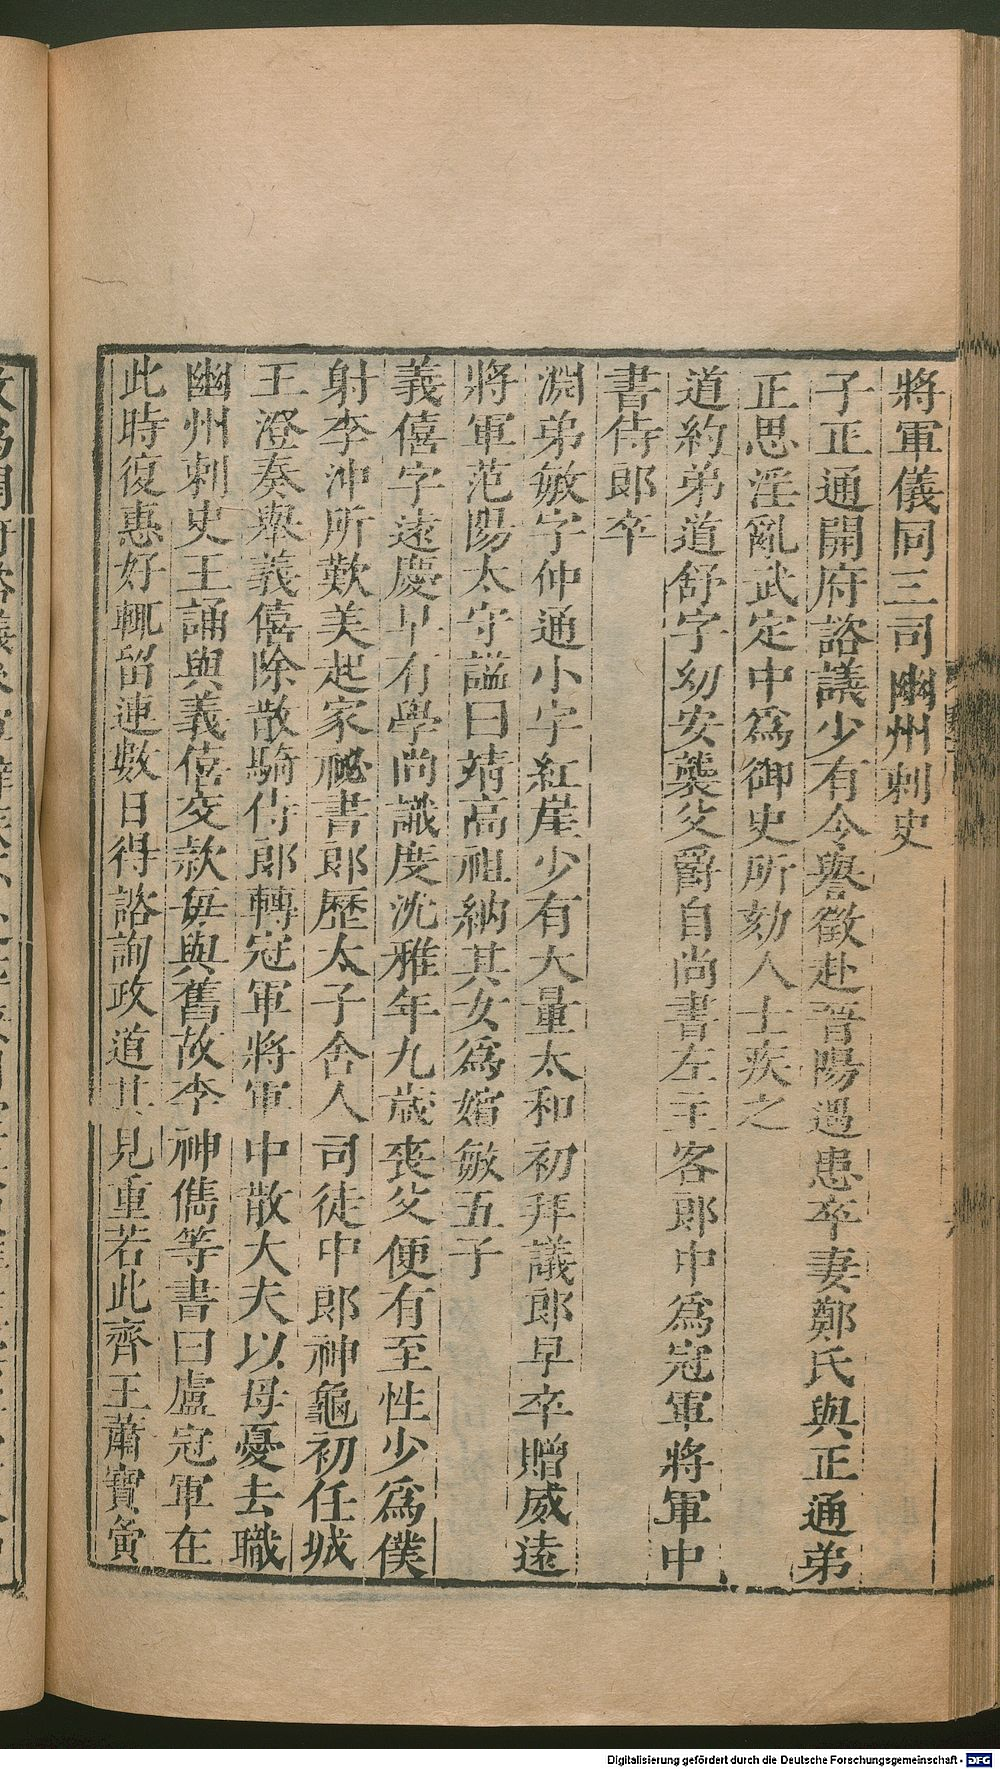 將軍儀同三司幽州刺史
子正通開府諮議少有令譽徵赴晉陽遇患卒妻鄭氏與正通弟
正思淫亂武定中爲御史所劾人士疾之
道約弟道舒字幼安襲父爵自尚書左主客郎中爲冠軍將軍中
書侍郎卒
淵弟敏字仲通小字紅崖少有大量太和初拜議郎早卒贈威遠
將軍范陽太守謚曰靖高祖納其女爲嬪敏五子
義僖字遠慶早有學尚識度沈雅年九歲喪父便有至性少爲僕
射李沖所歎美起家祕書郎歷太子舍人司徒中郎神龜初任城
王澄奏舉義僖除散騎侍郎轉冠軍將軍中散大夫以母憂去職
幽州刺史王誦與義僖交款每與舊故李神儁等書曰盧冠軍在
此時復惠好輒留連數日得諮詢政道其見重若此齊王蕭寶寅
Digitalisierung gefördert durch die Deutsche Forschungsgemeinschaft - DFG